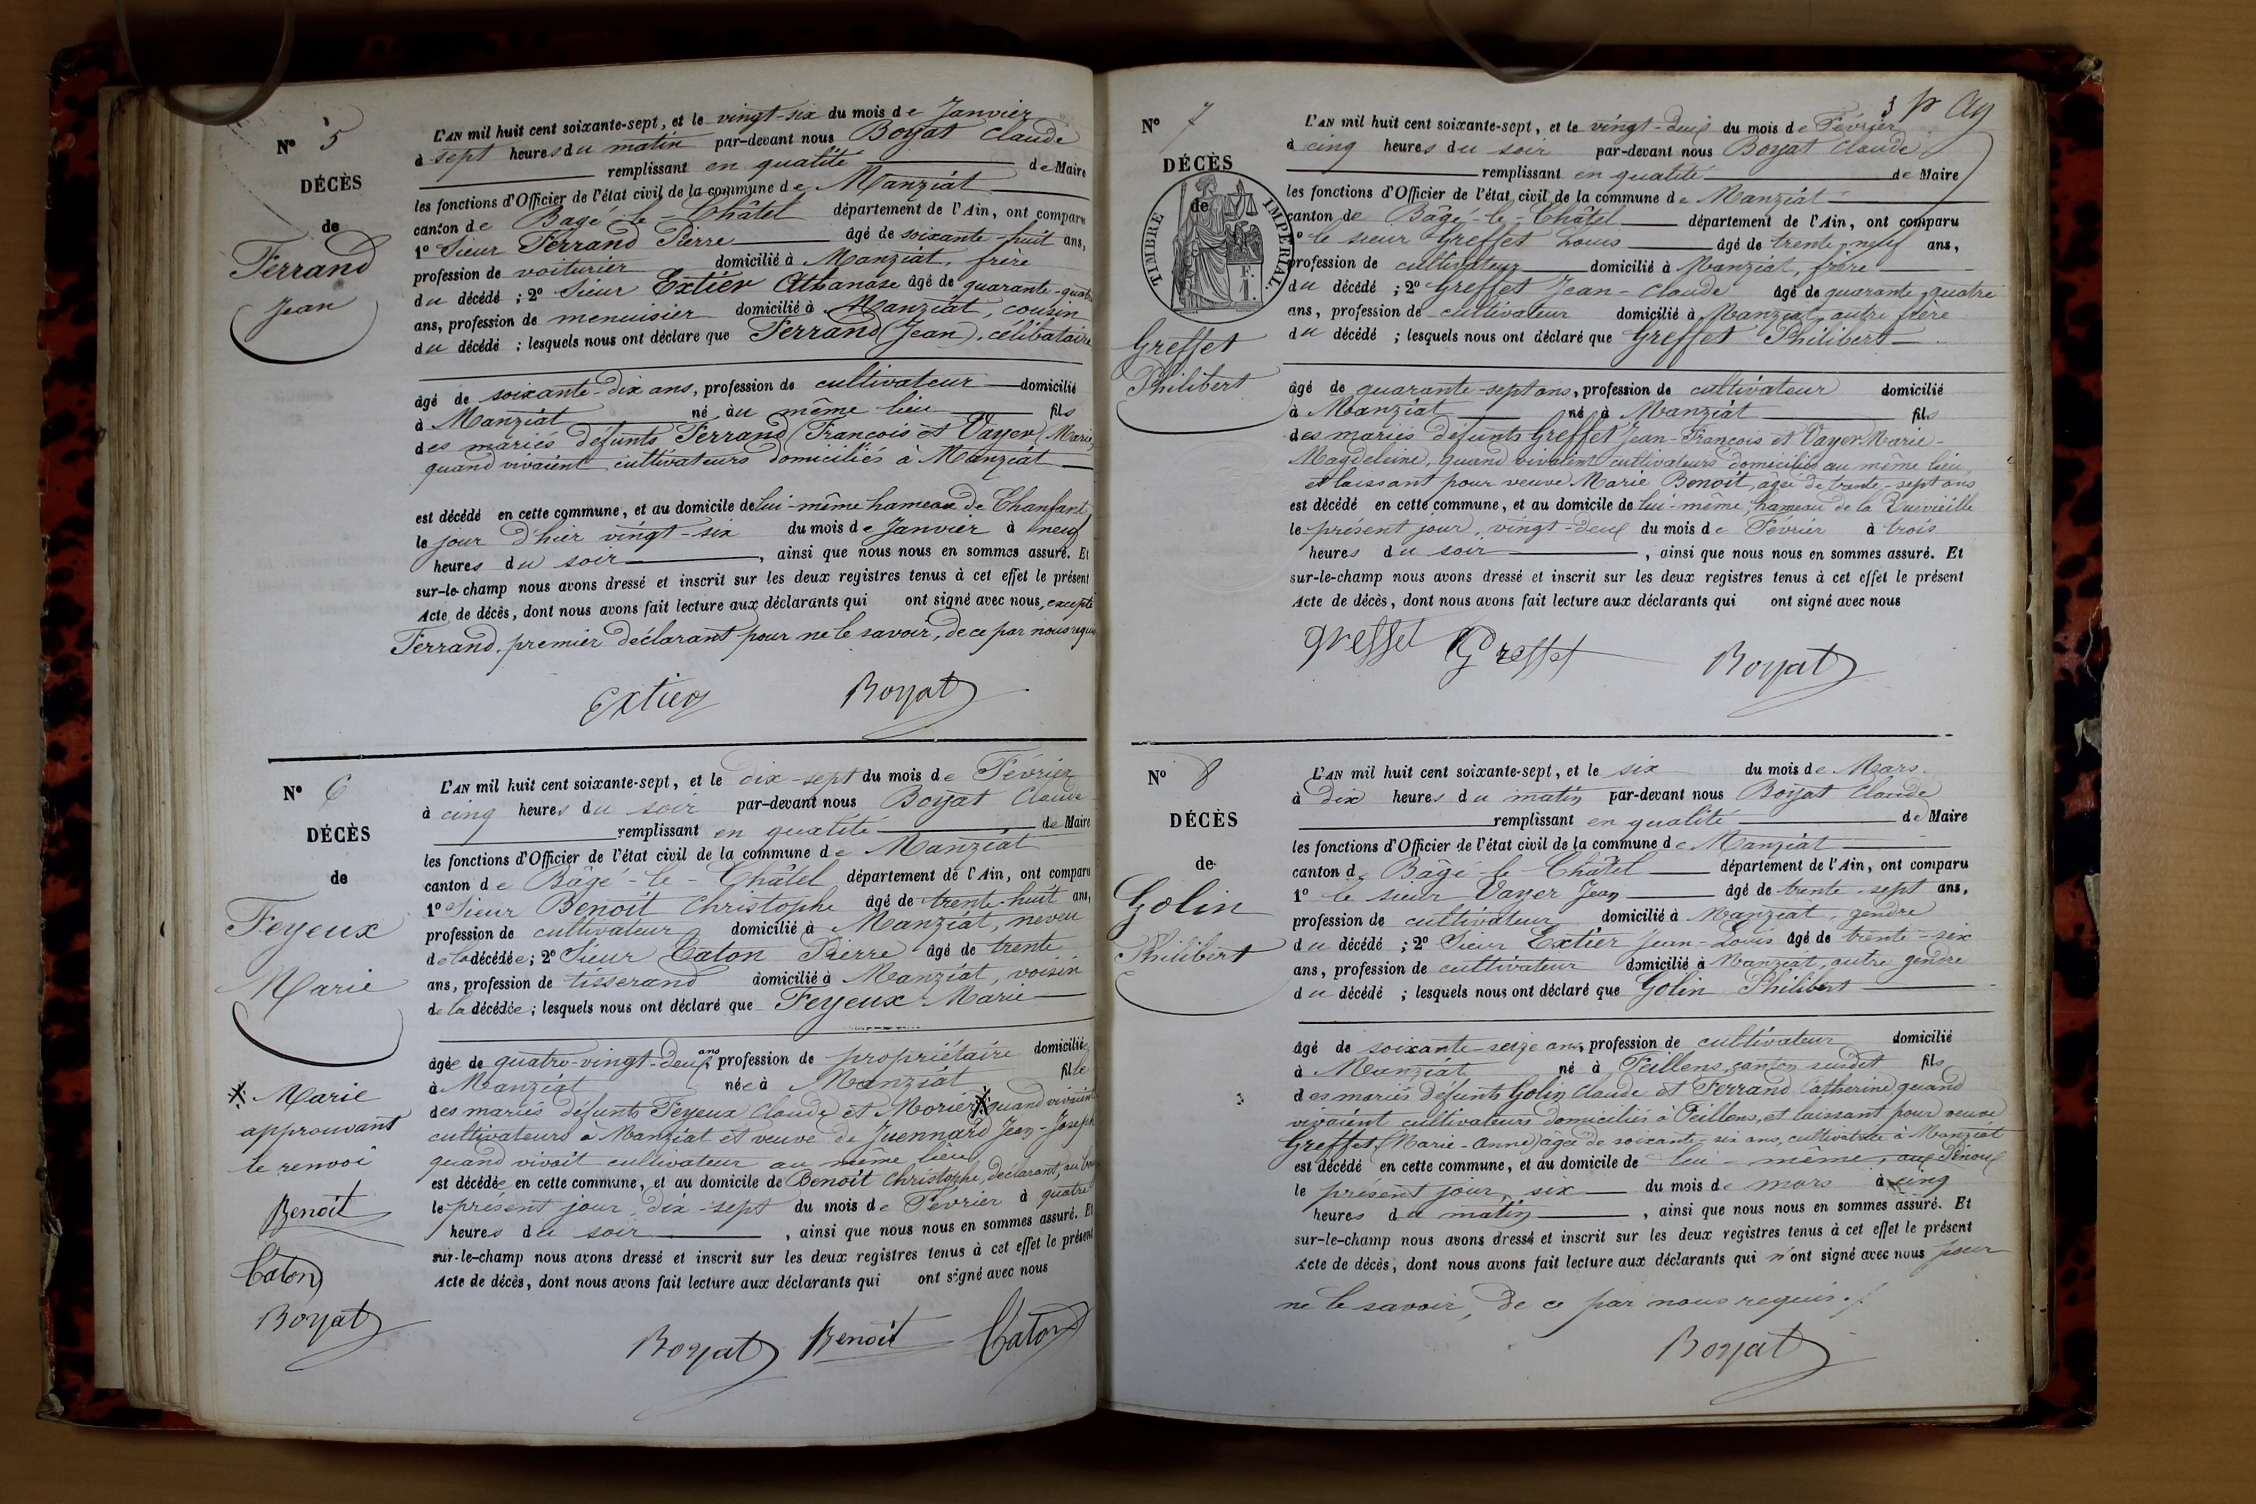 N° 5
DÉCÈS
de
Ferrand
Jean
L'AN mil huit cent soixante-sept, et le vingt-six du mois de Janvier
à sept heures du matin par-devant nous Boyat Claude
remplissant en qualité de Maire
les fonctions d'Officier de l'état civil de la commune de Manziat
canton de Bagé-le-Châtel département de l'Ain, ont comparu
1° Sieur Ferrand Pierre âgé de soixante-huit ans,
profession de voiturier domicilié à Manziat, frère
du décédé ; 2° Sieur Extier Athanase âgé de quarante-quatre
ans, profession de menuisier domicilié à Manziat, cousin
du décédé ; lesquels nous ont déclaré que Ferrand (Jean), célibataire
âgé de soixante-dix ans, profession de cultivateur domicilié
à Manziat né au même lieu fils
des mariés défunts Ferrand (François et Vayer (Marie)
quand vivaient cultivateurs domiciliés à Manziat
est décédé en cette commune, et au domicile de lui-même hameau de Chanfant
le jour d'hier vingt-six du mois de Janvier à neuf
heures du soir , ainsi que nous nous en sommes assuré. Et
sur-le-champ nous avons dressé et inscrit sur les deux registres tenus à cet effet le présent
Acte de décès, dont nous avons fait lecture aux déclarants qui ont signé avec nous, excepté
Ferrand, premier déclarant pour ne le savoir, de ce par nous requis
Extier Boyat
N° 6
DÉCÈS
de
Feyeux
Marie
L'AN mil huit cent soixante-sept, et le dix-sept du mois de Février
à cinq heures du soir par-devant nous Boyat Claude
remplissant en qualité de Maire
les fonctions d'Officier de l'état civil de la commune de Manziat
canton de Bâgé-le-Châtel département de l'Ain, ont comparu
1° Sieur Benoit Christophe âgé de trente-huit ans,
profession de cultivateur domicilié à Manziat, neveu
de la décédée ; 2° Sieur Caton Pierre âgé de trente
ans, profession de tisserand domicilié à Manziat, voisin
de la décédée ; lesquels nous ont déclaré que Feyeux Marie
âgée de quatre-vingt-deux ans profession de propriétaire domiciliée
à Manziat née à Manziat fille
des mariés défunts Feyeux Claude et Morier quand vivaient
cultivateurs à Manziat et veuve de Juennard Jean-Joseph
quand vivait cultivateur au même lieu
est décédée en cette commune, et au domicile de Benoit Christophe, déclarant, au
le présent jour, dix-sept du mois de Février à quatre
heures du soir , ainsi que nous nous en sommes assuré. Et
sur-le-champ nous avons dressé et inscrit sur les deux registres tenus à cet effet le présent
Acte de décès, dont nous avons fait lecture aux déclarants qui ont signé avec nous
Boyat Benoit Caton
Marie
approuvant
le renvoi
Benoit
Caton
Boyat
N° 7
DÉCÈS
de
TIMBRE IMPÉRIAL
Greffet
Philibert
3
L'AN mil huit cent soixante-sept, et le vingt-deux du mois de Février
à cinq heures du soir par-devant nous Boyat Claude
remplissant en qualité de Maire
les fonctions d'Officier de l'état civil de la commune de Manziat
canton de Bâgé-le-Châtel département de l'Ain, ont comparu
1° le sieur Greffet Louis âgé de trente-neuf ans,
profession de cultivateur domicilié à Manziat, frère
du décédé ; 2° Greffet Jean-Claude âgé de quarante-quatre
ans, profession de cultivateur domicilié à Manziat autre frère
du décédé ; lesquels nous ont déclaré que Greffet Philibert
âgé de quarante-sept ans, profession de cultivateur domicilié
à Manziat né à Manziat fils
des mariés défunts Greffet Jean-François et Vayer Marie-
Magdeleine, quand vivaient cultivateurs domiciliés au même lieu,
et laissant pour veuve Marie Benoit, âgée de trente-sept ans
est décédé en cette commune, et au domicile de lui-même, hameau de la
le présent jour, vingt-deux du mois de Février à trois
heures du soir , ainsi que nous nous en sommes assuré. Et
sur-le-champ nous avons dressé et inscrit sur les deux registres tenus à cet effet le présent
Acte de décès, dont nous avons fait lecture aux déclarants qui ont signé avec nous
greffet Greffet Boyat
N° 8
DÉCÈS
de
Golin
Philibert
L'AN mil huit cent soixante-sept, et le six du mois de Mars
à dix heures du matin par-devant nous Boyat Claude
remplissant en qualité de Maire
les fonctions d'Officier de l'état civil de la commune de Manziat
canton de Bâgé-le-Châtel département de l'Ain, ont comparu
1° le sieur Vayer Jean âgé de trente-sept ans,
profession de cultivateur domicilié à Manziat, gendre
du décédé ; 2° Sieur Extier Jean-Louis âgé de trente-six
ans, profession de cultivateur domicilié à Manziat, autre gendre
du décédé ; lesquels nous ont déclaré que Golin Philibert
âgé de soixante-seize ans, profession de cultivateur domicilié
à Manziat né à Feillens, canton susdit fils
des mariés défunts Golin Claude et Ferrand Catherine, quand
vivaient cultivateurs domiciliés à Feillens, et laissant pour veuve
Greffet (Marie-Anne) âgée de soixante-six ans, cultivatrice à Manziat
est décédé en cette commune, et au domicile de lui-même, aux
le présent jour, six du mois de mars à cinq
heures du matin , ainsi que nous nous en sommes assuré. Et
sur-le-champ nous avons dressé et inscrit sur les deux registres tenus à cet effet le présent
Acte de décès, dont nous avons fait lecture aux déclarants qui n'ont signé avec nous pour
ne le savoir, de ce par nous requis
Boyat